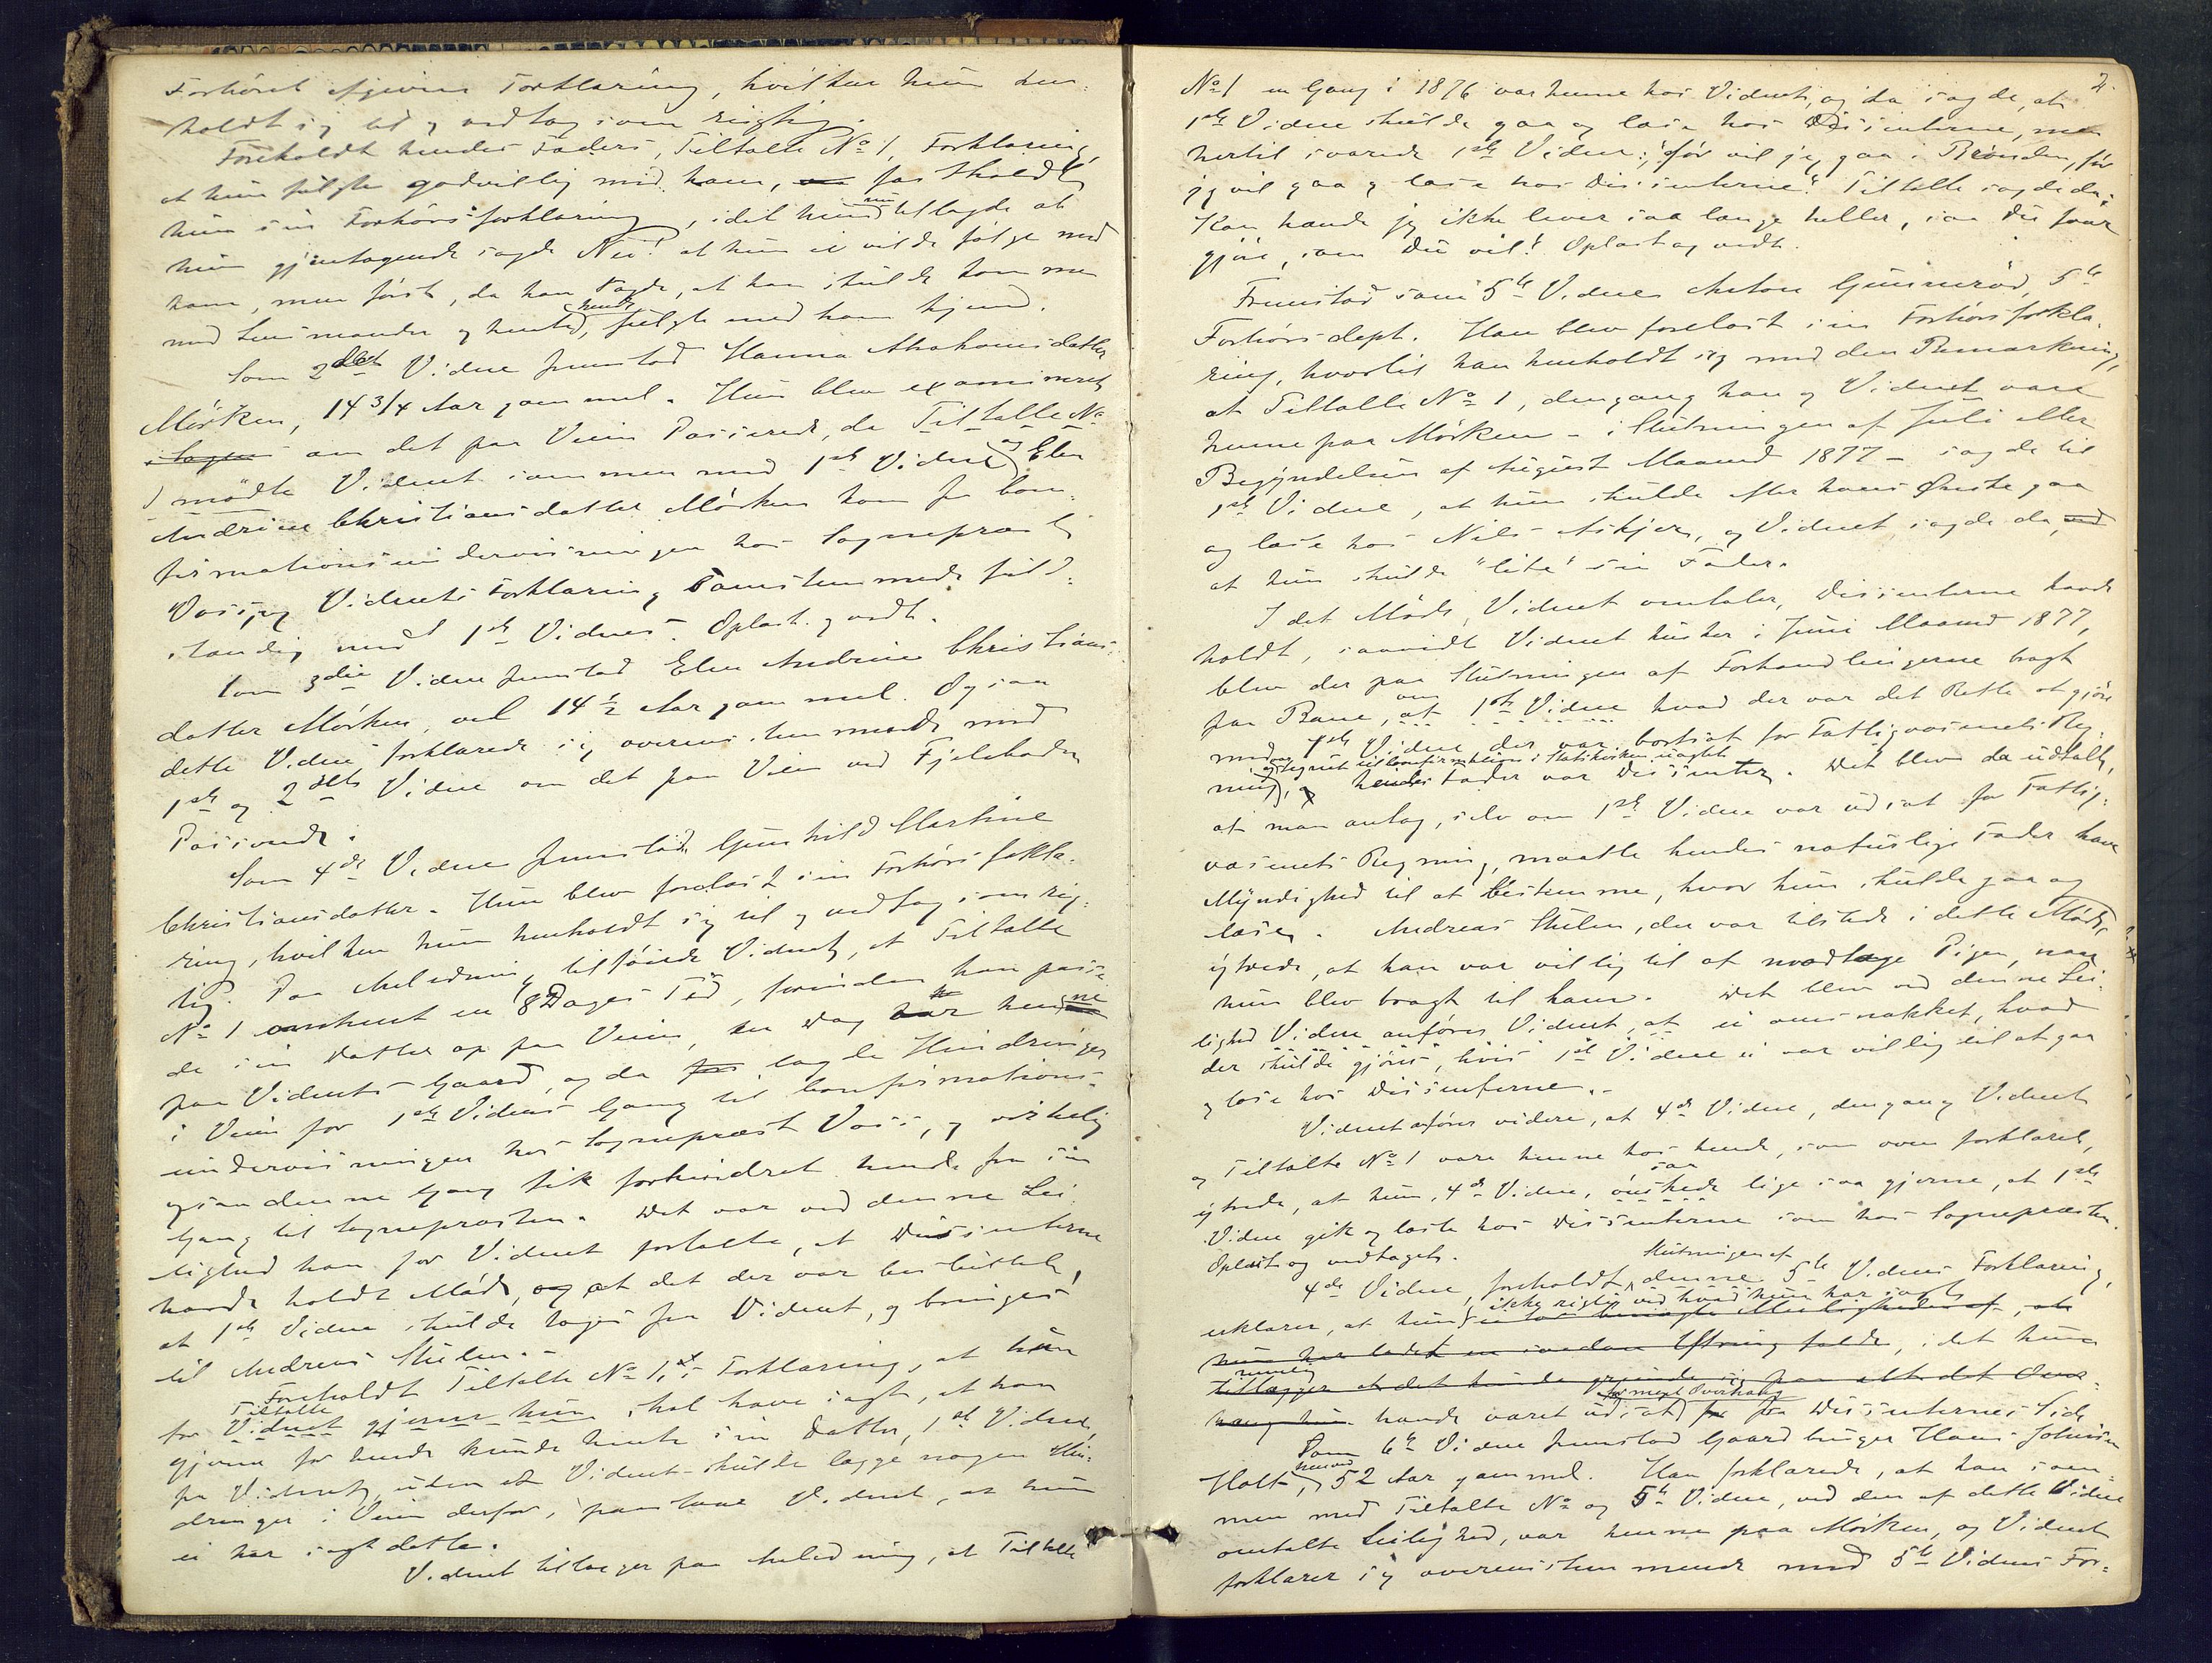 Forhöret afgivne Forklaring, hvilken hun hen-
holdt sig til og vedtog som rigtig.
Foreholdt hendes Faders, Tiltalte No 1, Forklaring,
at hun fulgte godvillig med ham, fastholdt
hun sin Forhörsforklaring, idet hun tillagde at
hun gjentagende sagde Nei! at hun ei vilde fölge med
ham, men först, da han sagde, at han skulde komme
med Lensmanden og hente hende, fulgte med ham hjem.
Som 2det Vidne fremstod Hanna Abrahamsdatter
Mörken, 14 3/4 Aar gammel. Hun blev examineret
om det paa Veien Passerede, da Tiltalte No
1 mödte Vidnet sammen med 1ste Vidne og Elen
Andrine Christiansdatter Mörken kom fra Con-
firmationsundervisningen hos Sognepræst
Voss, og Vidnets Forklaring samstemmede fuld-
stændig med 1ste Vidnes. Oplæst og vedt.
Som 3die Vidne fremstod Elen Andrine Christians-
datter Mörken, vel 14 1/2 Aar gammel. Ogsaa
dette Vidne forklarede sig overensstemmende med
1ste og 2det Vidne om det paa Veien ved Fjeleboden
Passerede.
Som 4de Vidne fremstod Gunhild Martine
Christiansdatter. Hun blev forelæst sin Forhörsforkla-
ring, hvilken hun henholdt sig til og vedtog som rig-
tig. Paa Anledning tilföiede Vidnet, at Tiltalte
No 1 omtrent en 8 Dages Tid, forinden han passe-
de sin Datter op paa Veien, en Dag var henne
paa Vidnets Gaard, og da lagde Hindringer
i Veien for 1ste Vidnes Gang til Confirmations-
undervisningen hos Sognepræst Voss, og virkelig
ogsaa denne Gang fik forhindret hende fra sin
Gang til Sognepræsten. Det var ved denne Lei-
lighed han for Vidnet fortalte, at Dissenterne
havde holdt Möde, og at det der var besluttet,
at 1ste Vidne skulde tages fra Vidnet, og bringes
til Andreas Stulen.-
Foreholdt Tiltalte No 1.s Forklaring, at hun
for Tiltalte Vidnet gjerne hun skal have sagt, at han
gjerne for hende kunde hente sin Datter, 1ste Vidne,
fra Vidnet, uden at Vidnet skulde lægge nogen Hin-
dringer i Veien derfor, paastaar Vidnet, at hun
ei har sagt dette.
Vidnet tillægger paa Anledning, at Tiltalte
2.
No 1 en Gang i 1876 var henne hos Vidnet, og da sagde, at
1ste Vidne skulde gaa og læse hos Dissenterne, men
hertil svarede 1ste Vidne: "för vil jeg gaa i Brönden, för
jeg vil gaa og læse hos Dissenterne". Tiltalte sagde da:
"Kan hænde jeg ikke lever saa længe heller, saa Du faar
gjöre, som Du vil". Oplæst og vedt.
Fremstod som 5te Vidne Anton Gunnerød, 5te
Forhörsdept. Han blev forelæst sin Forhörsforkla-
ring, hvortil han henholdt sig med den Bemærkning,
at Tiltalte No 1, dengang han og Vidnet vare
henne paa Mörken - i Slutningen af Juli eller
Begyndelsen af August Maaned 1877 - sagde til
1ste Vidne, at hun skulde efter hans Önske gaa
og læse hos Nils Askjer, og Vidnet sagde da,
at hun skulde "lite" sin Fader.
I det Möde, Vidnet omtaler, Dissenterne havde
holdt, saavidt Vidnet husker i Juni Maaned 1877,
blev der paa Slutningen af Forhandlingerne bragt
paa Bane, om at 1ste Vidne hvad der var det Rette at gjöre
med 1ste Vidne der var bortsat for Fattigvæsenets Reg-
og tegnet til Confirmation i Statskirken uagtet
ning, hendes Fader var Dissenter. Det blev da udtalt,
at man antog, selv om 1ste Vidne var udsat for Fattig-
væsenets Regning, maatte hendes naturlige Fader have
Myndighed til at bestemme, hvor hun skulde gaa og
læse. Andreas Stulen, der var tilstede i dette Möde,
ytrede, at han var villig til at modtage Pigen, naar
hun blev bragt til ham. Det blev ved denne Lei-
lighed Vidne anförer Vidnet, at ei omsnakket, hvad
der skulde gjöres, hvis 1ste Vidne ei var villig til at gaa
og læse hos Dissenterne.-
Vidnet anförer videre, at 4de Vidne, dengang Vidnet
og Tiltalte No 1 vare henne hos hende, som oven forklaret,
ytrede, at hun, 4de Vidne, saa önskede lige saa gjerne, at 1ste
Vidne gik og læste hos Dissenterne som hos Sognepræsten.
Oplæst og vedtaget.
4de Vidne, foreholdt Slutningen af denne 5te Vidnes Forklaring,
erklærer, at hun ikke rigtig ved hvad hun har sagt
idet hun
nemlig
for meget Overhæng
havde været udsat fra Dissenternes Side
Som 6te Vidne fremstod Gaardbruger Hans Johnsen
Holt, 52 Aar gammel. Han forklarede, at han sam-
men med Tiltalte No og 5te Vidne, ved den af dette Vidne
omtalte Leilighed, var henne paa Mörken, og Vidnet
forklarer sig overensstemmende med 5te Vidnes For-